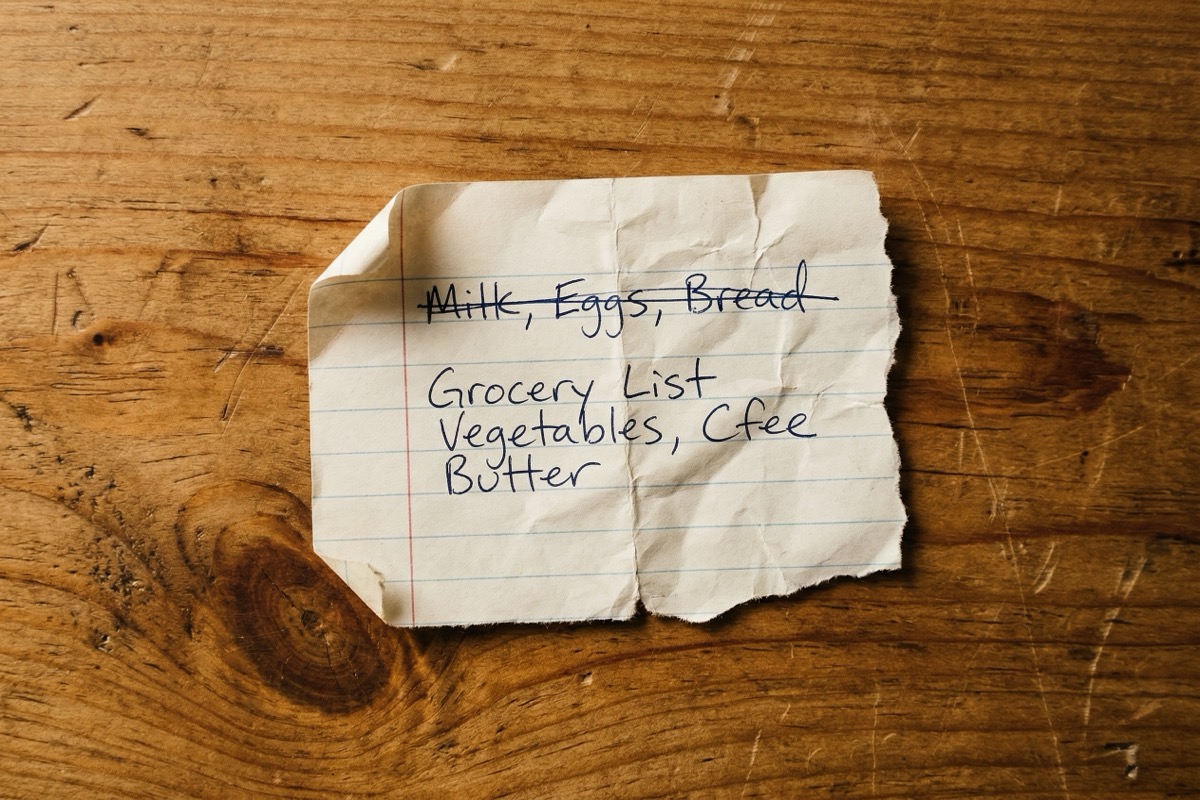 Milk, Eggs, Bread
Grocery List
Vegetables, Cfee
Butter